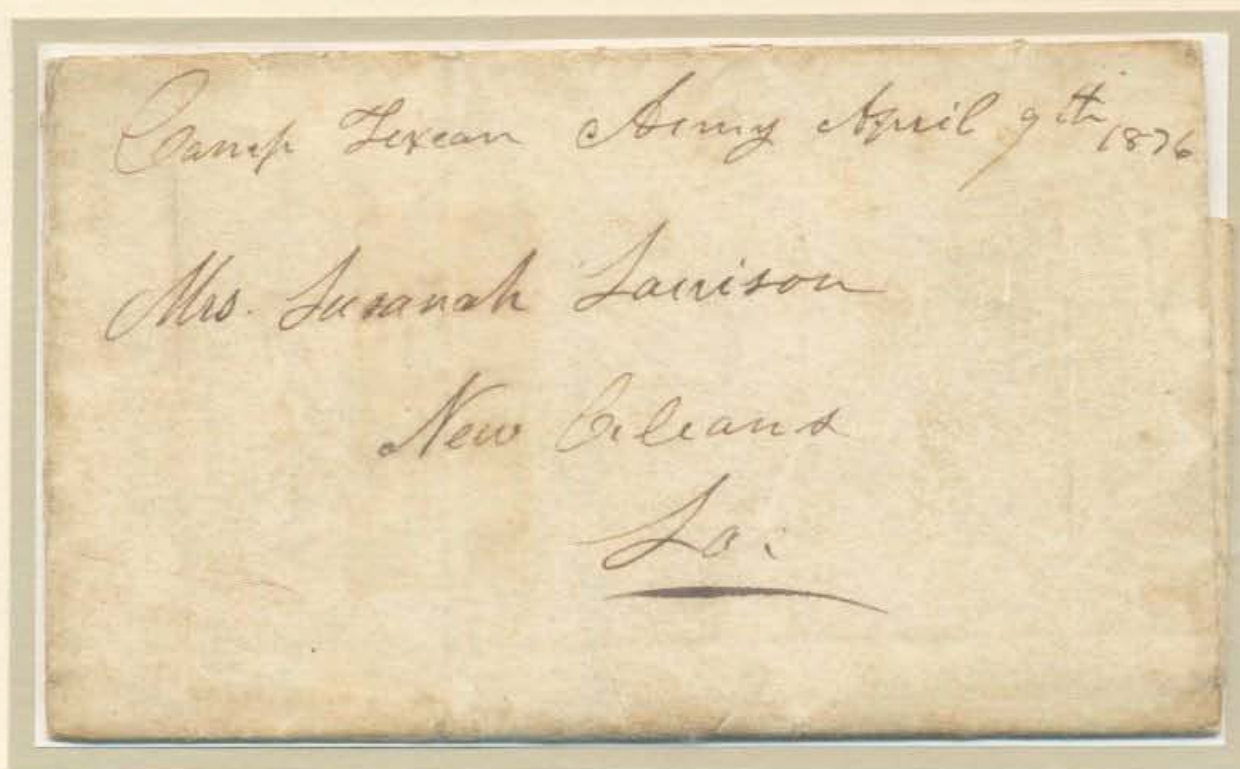 Camp Texean Army April 9th 1836
Mrs. Susanah Larrison
New Orleans
La.